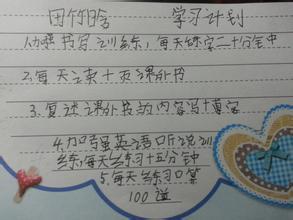 学习计划
1.加强书写训练，每天练字二十分钟
2.每天读十页课外书
3.复述课外书的内容写
4.加强英语听说训
练,每天练习十五分钟
5.每天练习口算
100道